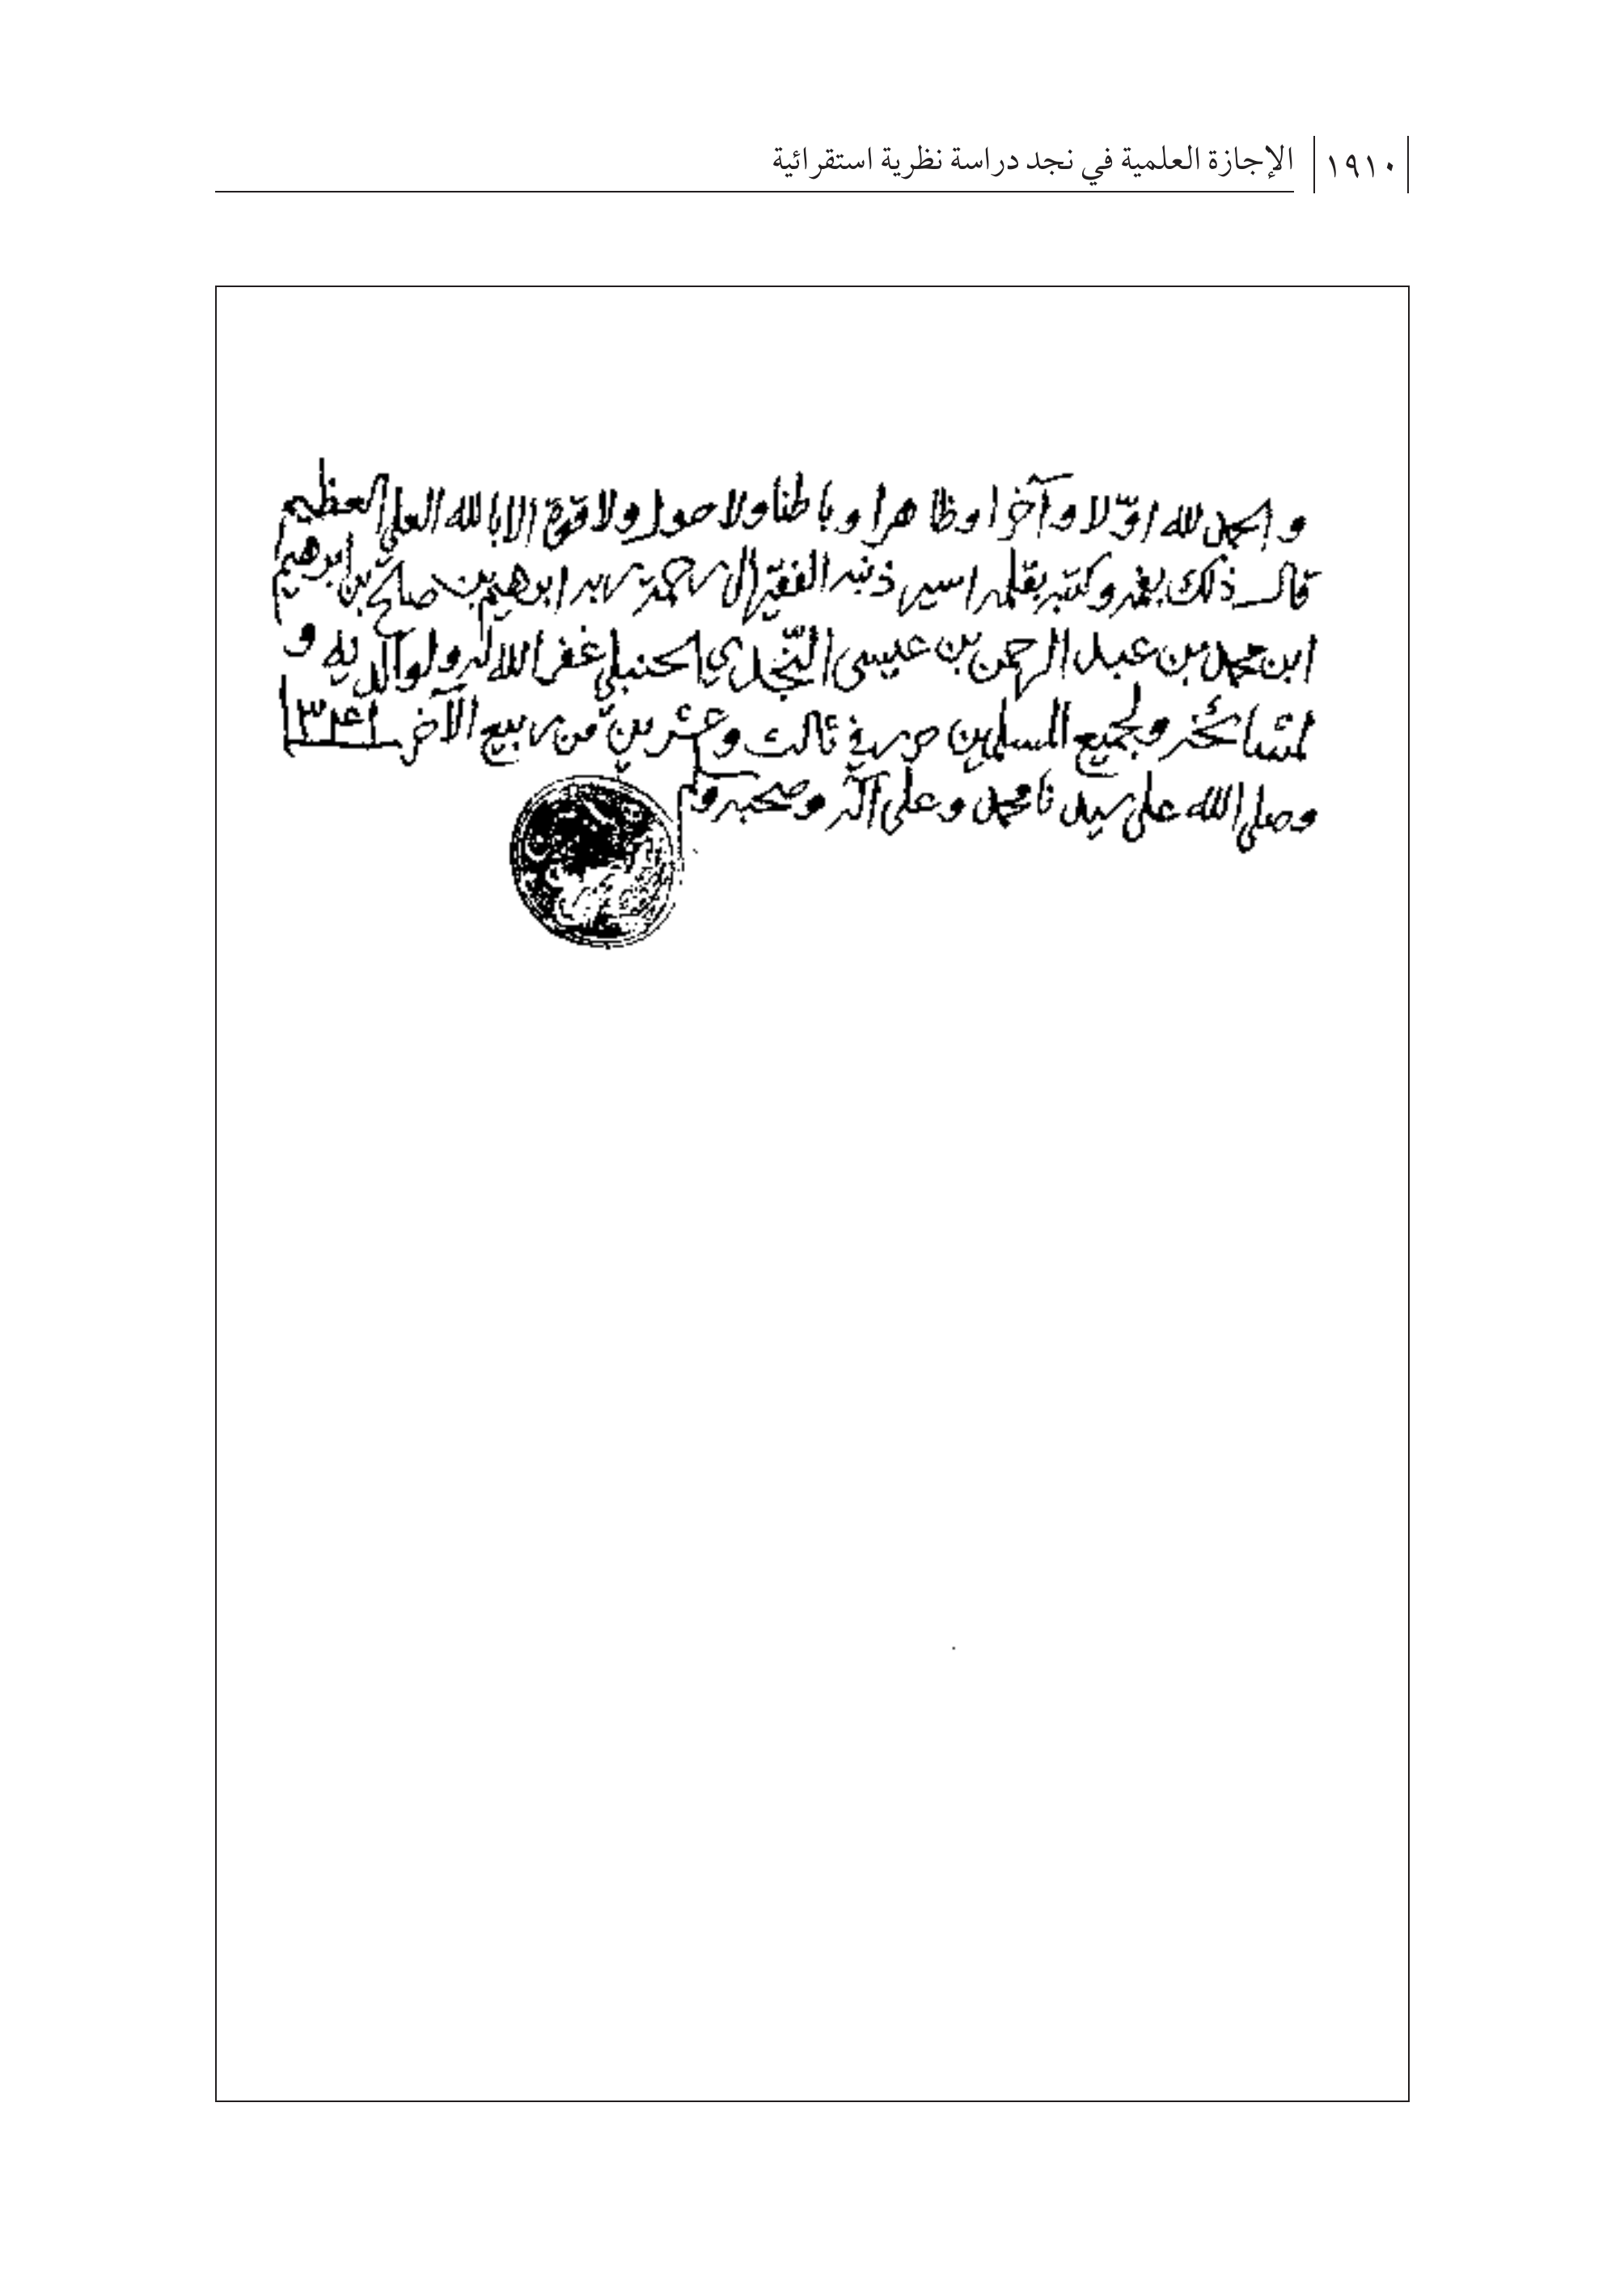 ١٩١٠ الإجازة العلمية في نجد دراسة نظرية استقرائية
والحمد لله اوّلا وآخرا وظاهرا وباطنا ولا حول ولا قوة الا بالله العلي العظيم
قال ذلك بفمه وكتبه بقلمه اسير ذنبه الفقير الى رحمة ربه ابرهيم بن صلح بن ابرهيم
ابن محمد بن عبد الرحمن بن عيسى النجدي الحنبلي غفر الله له ولوالديه و
لمشائخه ولجميع المسلمين حرر في ثالث وعشرين من ربيع الآخر
وصلى الله على سيدنا محمد وعلى آله وصحبه و